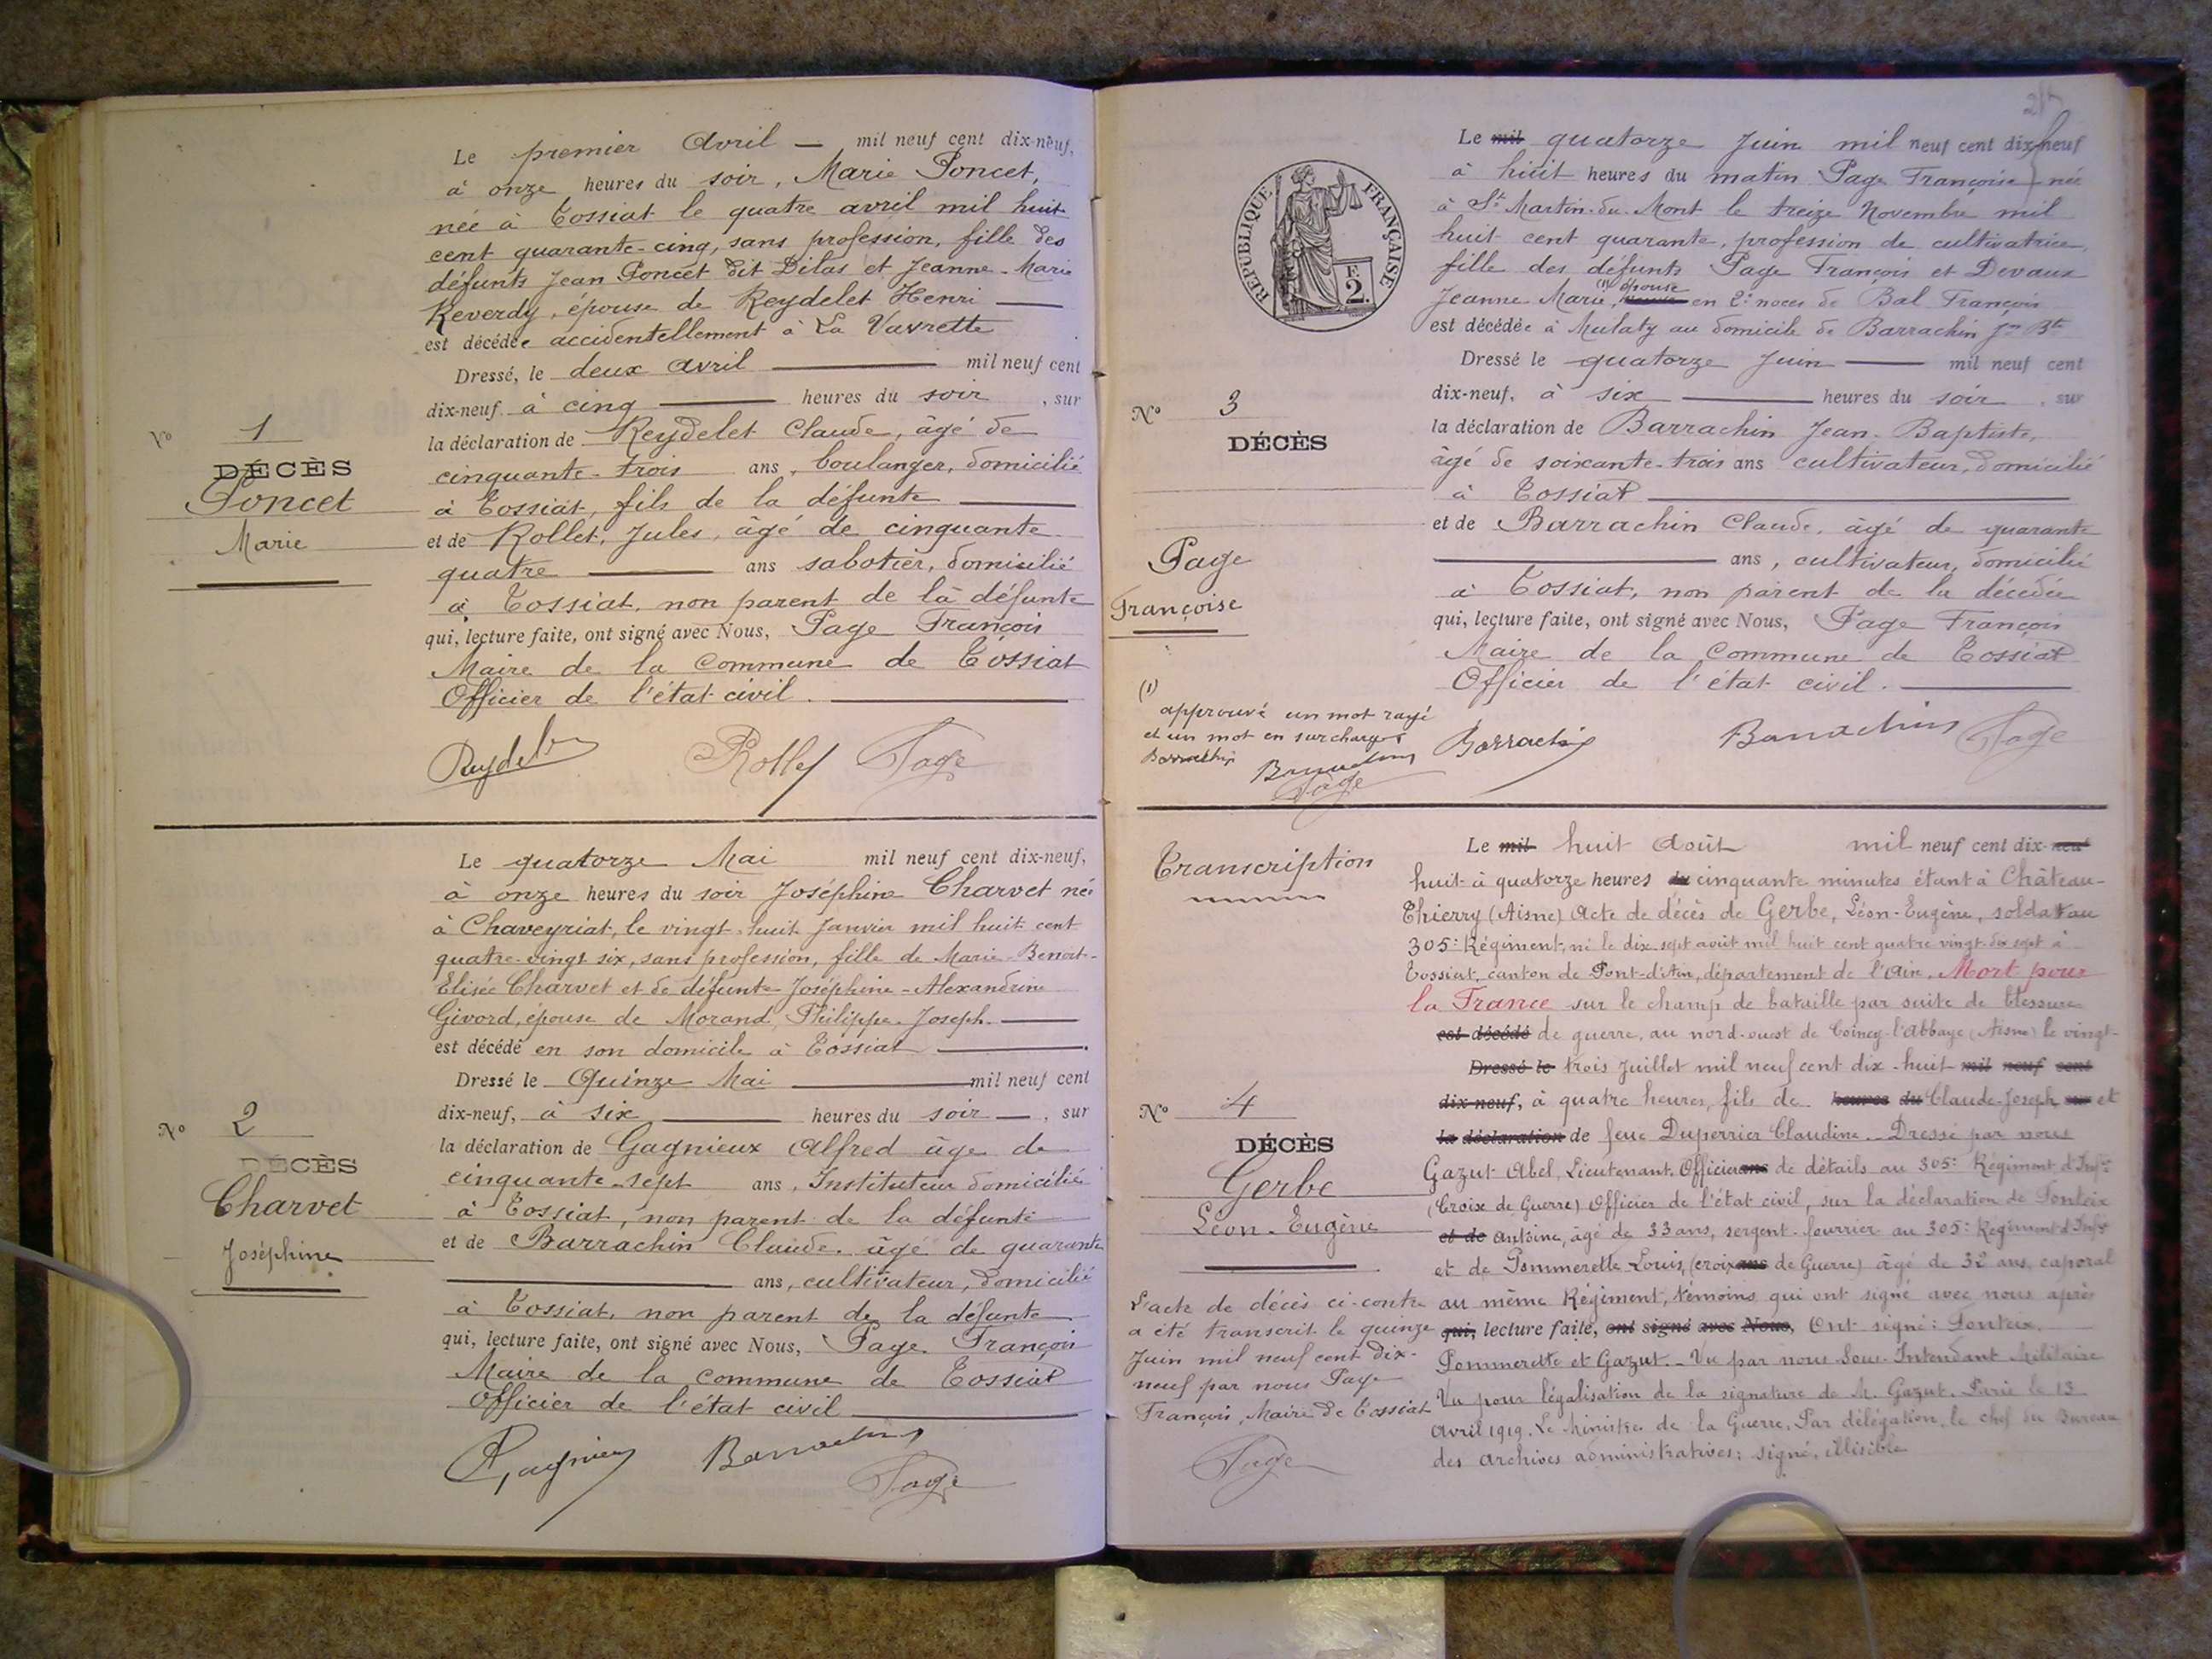 Le premier Avril — mil neuf cent dix-neuf,
à onze heures du soir, Marie Poncet,
née à Tossiat le quatre avril mil huit
cent quarante-cinq, sans profession, fille des
défunts Jean Poncet dit Dilas et Jeanne-Marie
Reverdy, épouse de Reydelet Henri —
est décédée accidentellement à La Vavrette
Dressé, le deux avril — mil neuf cent
dix-neuf à cinq — heures du soir, sur
la déclaration de Reydelet Claude, âgé de
cinquante-trois ans, boulanger, domicilié
à Tossiat, fils de la défunte —
et de Rollet, Jules, âgé de cinquante
quatre — ans sabotier, domicilié
à Tossiat, non parent de la défunte
qui, lecture faite, ont signé avec Nous, Page François
Maire de la Commune de Tossiat
Officier de l'état-civil. —
N° 1
DÉCÈS
Poncet
Marie
Reydelet Rollet Page
Le quatorze Mai mil neuf cent dix-neuf,
à onze heures du soir Joséphine Charvet née
à Chaveyriat, le vingt-huit Janvier mil huit cent
quatre-vingt six, sans profession, fille de Marie-Benoit-
Elisée Charvet et de défunte Joséphine-Alexandrine
Givord, épouse de Morand, Philippe-Joseph. —
est décédé en son domicile à Tossiat —
Dressé le Quinze Mai — mil neuf cent
dix-neuf, à six — heures du soir —, sur
la déclaration de Gagnieux Alfred âge de
cinquante-sept ans, Instituteur domicilié
à Tossiat, non parent de la défunte
et de Barrachin Claude. âgé de quarante
— ans, cultivateur, domicilié
à Tossiat, non parent de la défunte
qui, lecture faite, ont signé avec Nous, Page François
Maire de la Commune de Tossiat
Officier de l'état civil —
N° 2
DÉCÈS
Charvet
Joséphine
Gagnieux Barrachin Page
RÉPUBLIQUE FRANÇAISE
E
2.
Le mil quatorze Juin mil neuf cent dix-neuf
à huit heures du matin Page Françoise née
à St Martin-du-Mont le treize Novembre mil
huit cent quarante, profession de cultivatrice,
fille des défunts Page François et Devaux
Jeanne Marie, (1) épouse en 2e noces de Bal François
est décédée à Mulaty au domicile de Barrachin Jn Bte
Dressé le quatorze Juin — mil neuf cent
dix-neuf, à six — heures du soir, sur
la déclaration de Barrachin Jean-Baptiste,
âgé de soixante-trois ans cultivateur, domicilié
à Tossiat —
et de Barrachin Claude, âgé de quarante
— ans, cultivateur, domicilié
à Tossiat, non parent de la décédée
qui, lecture faite, ont signé avec Nous, Page François
Maire de la Commune de Tossiat
Officier de l'état civil. —
N° 3
DÉCÈS
Page
Françoise
(1)
approuvé un mot rayé
et un mot en surcharge
Barrachin Barrachin
Page
Barrachin Barrachin Page
Transcription
Le mil huit Août mil neuf cent dix-neuf
huit à quatorze heures du cinquante minutes étant à Château-
Thierry (Aisne) Acte de décès de Gerbe, Léon-Eugène, soldat au
305e Régiment, né le dix-sept août mil huit cent quatre vingt-dix sept à
Tossiat, canton de Pont-d'Ain, département de l'Ain. Mort pour
la France sur le champ de bataille par suite de blessure
est décédé de guerre, au nord-ouest de Coincy-l'Abbaye (Aisne) le vingt-
Dressé le trois Juillet mil neuf cent dix-huit mil neuf cent
dix-neuf, à quatre heures, fils de heures du Claude-Joseph sur et
la déclaration de feue Duperrier Claudine. Dressé par nous
Gazut Abel, Lieutenant, Officier ans de détails au 305e Régiment d'Infie
(Croix de Guerre) Officier de l'état civil, sur la déclaration de Fonteix
et de Antoine, âgé de 33 ans, sergent-fourrier au 305e Régiment d'Infie
et de Pommerette Louis, (croix ans de Guerre) âgé de 32 ans, caporal
au même Régiment, témoins qui ont signé avec nous après
qui, lecture faite, ont signé avec Nous, Ont signé: Fonteix.
Pommerette et Gazut. _ Vu par nous Sous-Intendant Militaire
Vu pour légalisation de la signature de M. Gazut. Paris le 13
Avril 1919. Le Ministre de la Guerre, Par délégation, le chef du Bureau
des Archives administratives; signé, illisible
N° 4
DÉCÈS
Gerbe
Léon-Eugène
L'acte de décès ci-contre
a été transcrit le quinze
Juin mil neuf cent dix-
neuf par nous Page
François, Maire de Tossiat
Page